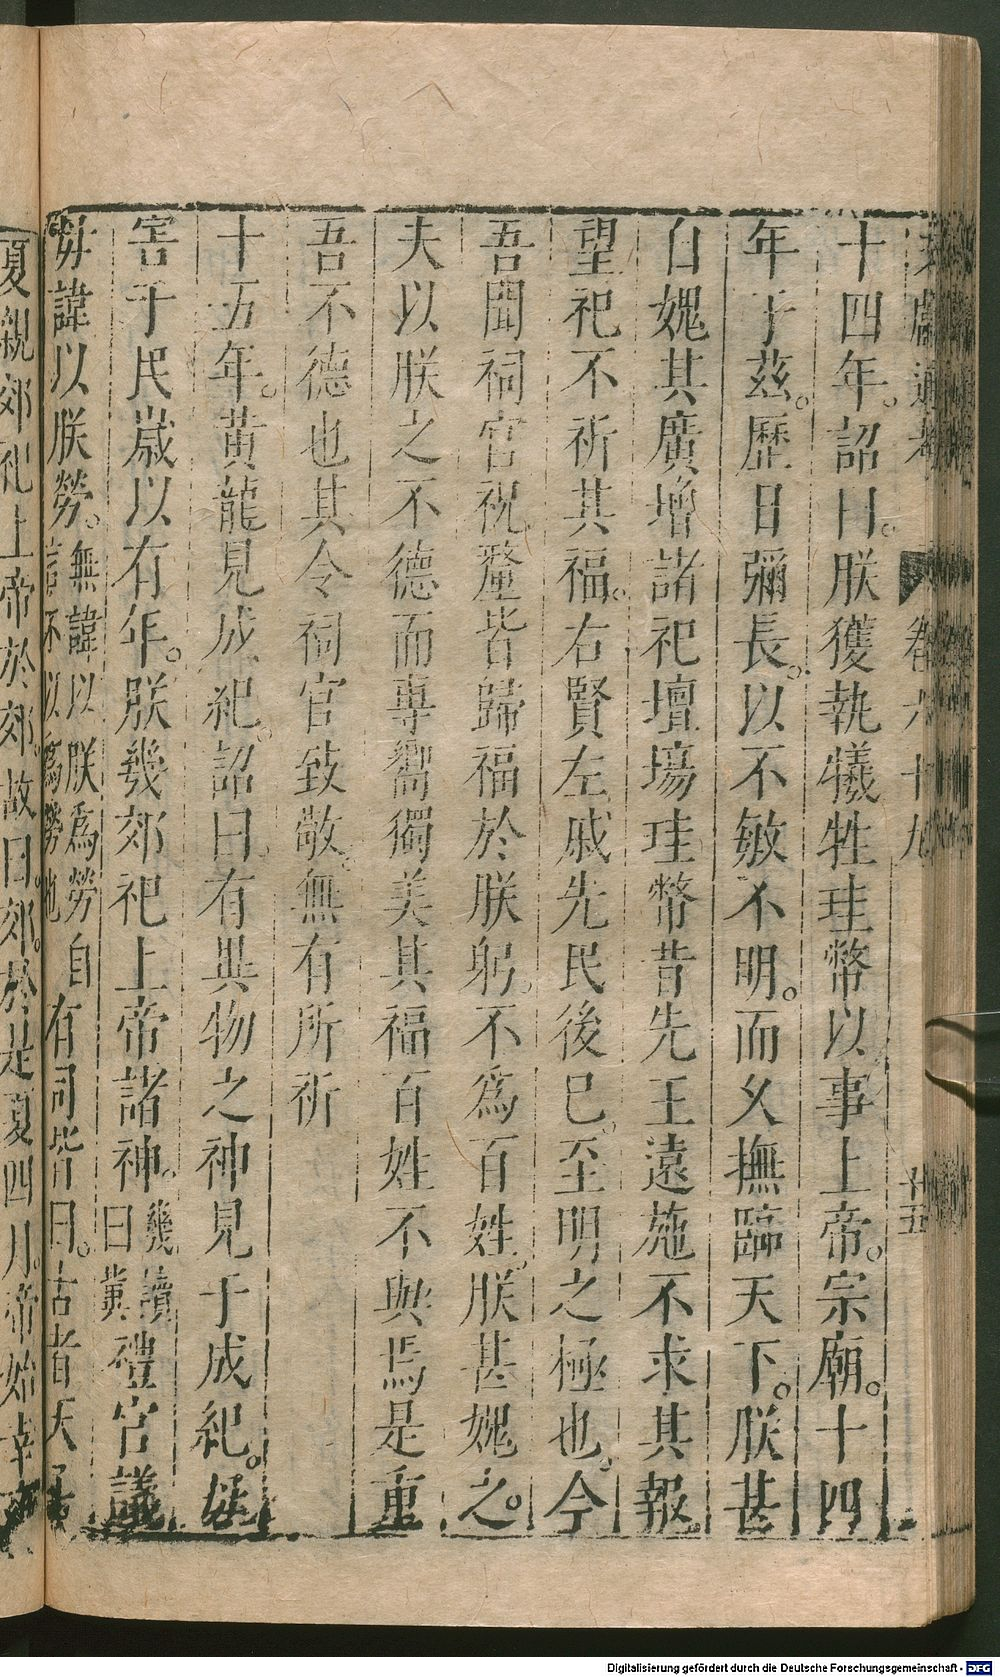 文獻通考 卷六十九 十五
十四年。詔曰。朕獲執犧牲珪幣以事上帝。宗廟。十四
年于茲。歷日彌長。以不敏不明。而久撫臨天下。朕甚
自媿其廣增諸祀壇場珪幣昔先王遠施不求其報
望祀不祈其福。右賢左戚先民後已。至明之極也。今
吾聞祠官祝釐皆歸福於朕躬。不為百姓。朕甚媿之。
夫以朕之不德而專嚮獨美其福百姓不與焉是重
吾不德也其令祠官致敬。無有所祈
十五年。黃龍見成紀。詔曰。有異物之神見于成紀。毋
害于民歲以有年。朕幾郊祀上帝諸神。幾讀曰冀禮官議
毋諱以朕勞。無諱以朕為勞自言不以為勞也有司皆曰。古者天子
夏親郊祀上帝於郊。故曰郊。於是夏四月。帝始幸
Digitalisierung gefördert durch die Deutsche Forschungsgemeinschaft - DFG